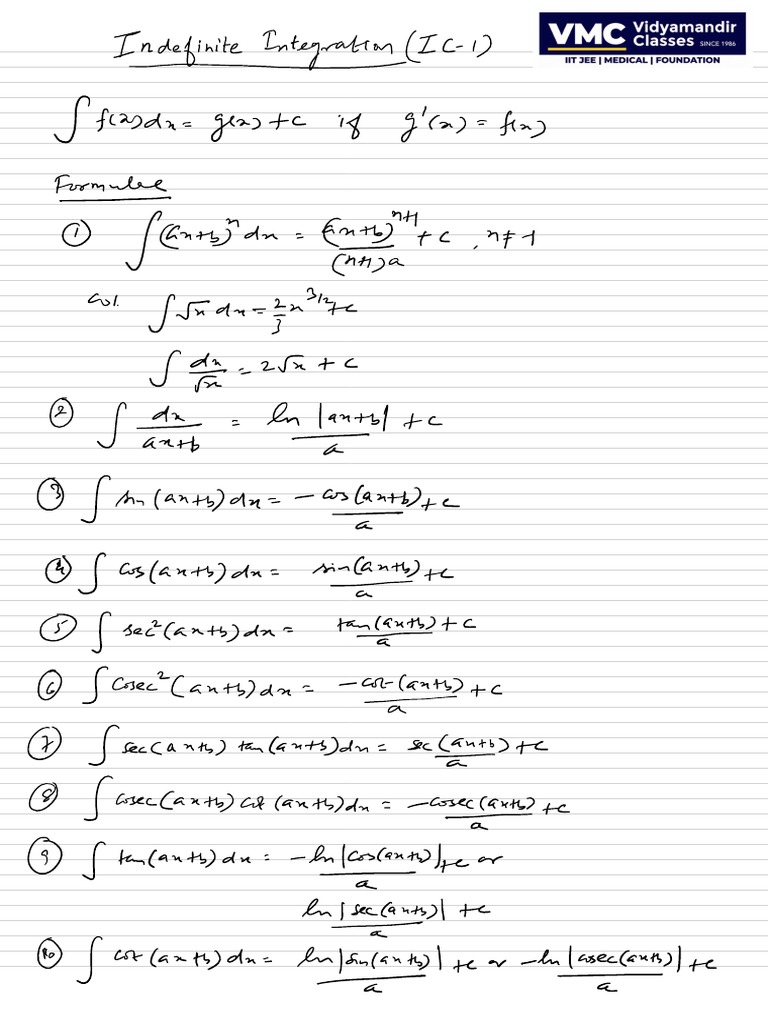 Indefinite Integration (IC-1)
VMC Vidyamandir Classes SINCE 1986
IIT JEE | MEDICAL | FOUNDATION
∫ f(x)dx = g(x) + c if g'(x) = f(x)
Formulae
① ∫(ax+b)^n dx = (ax+b)^(n+1)/((n+1)a) + c , n ≠ -1
∫√x dx = 2/3 x^(3/2) + c
∫ dx/√x = 2√x + c
② ∫ dx/(ax+b) = ln |ax+b|/a + c
③ ∫ sin(ax+b)dx = -cos(ax+b)/a + c
④ ∫ cos(ax+b)dx = sin(ax+b)/a + c
⑤ ∫ sec²(ax+b)dx = tan(ax+b)/a + c
⑥ ∫ cosec²(ax+b)dx = -cot(ax+b)/a + c
⑦ ∫ sec(ax+b) tan(ax+b)dx = sec(ax+b)/a + c
⑧ ∫ cosec(ax+b) cot(ax+b)dx = -cosec(ax+b)/a + c
⑨ ∫ tan(ax+b)dx = -ln|cos(ax+b)|/a + c or
ln|sec(ax+b)|/a + c
⑩ ∫ cot(ax+b)dx = ln|sin(ax+b)|/a + c or -ln|cosec(ax+b)|/a + c